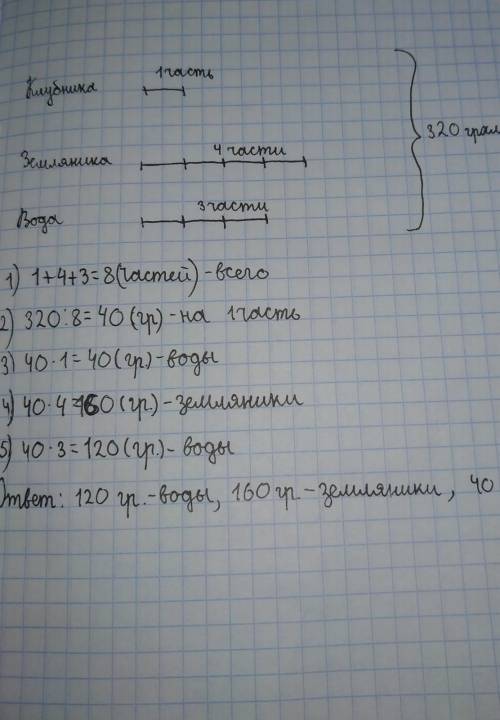 1 часть
Клубника
320 грам
4 части
Земляника
3 части
Вода
1) 1+4+3=8(частей)-всего
2) 320:8=40(гр)-на 1 часть
3) 40·1=40(гр)-воды
4) 40·4=160(гр.)-земляники
5) 40·3=120(гр.)-воды
Ответ: 120 гр.-воды, 160 гр-земляники, 40